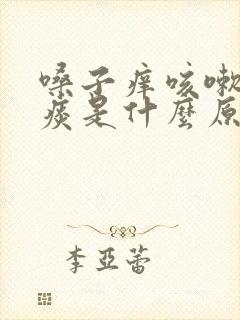 嗓子痒咳嗽
痰是什麼原
李亞蕾